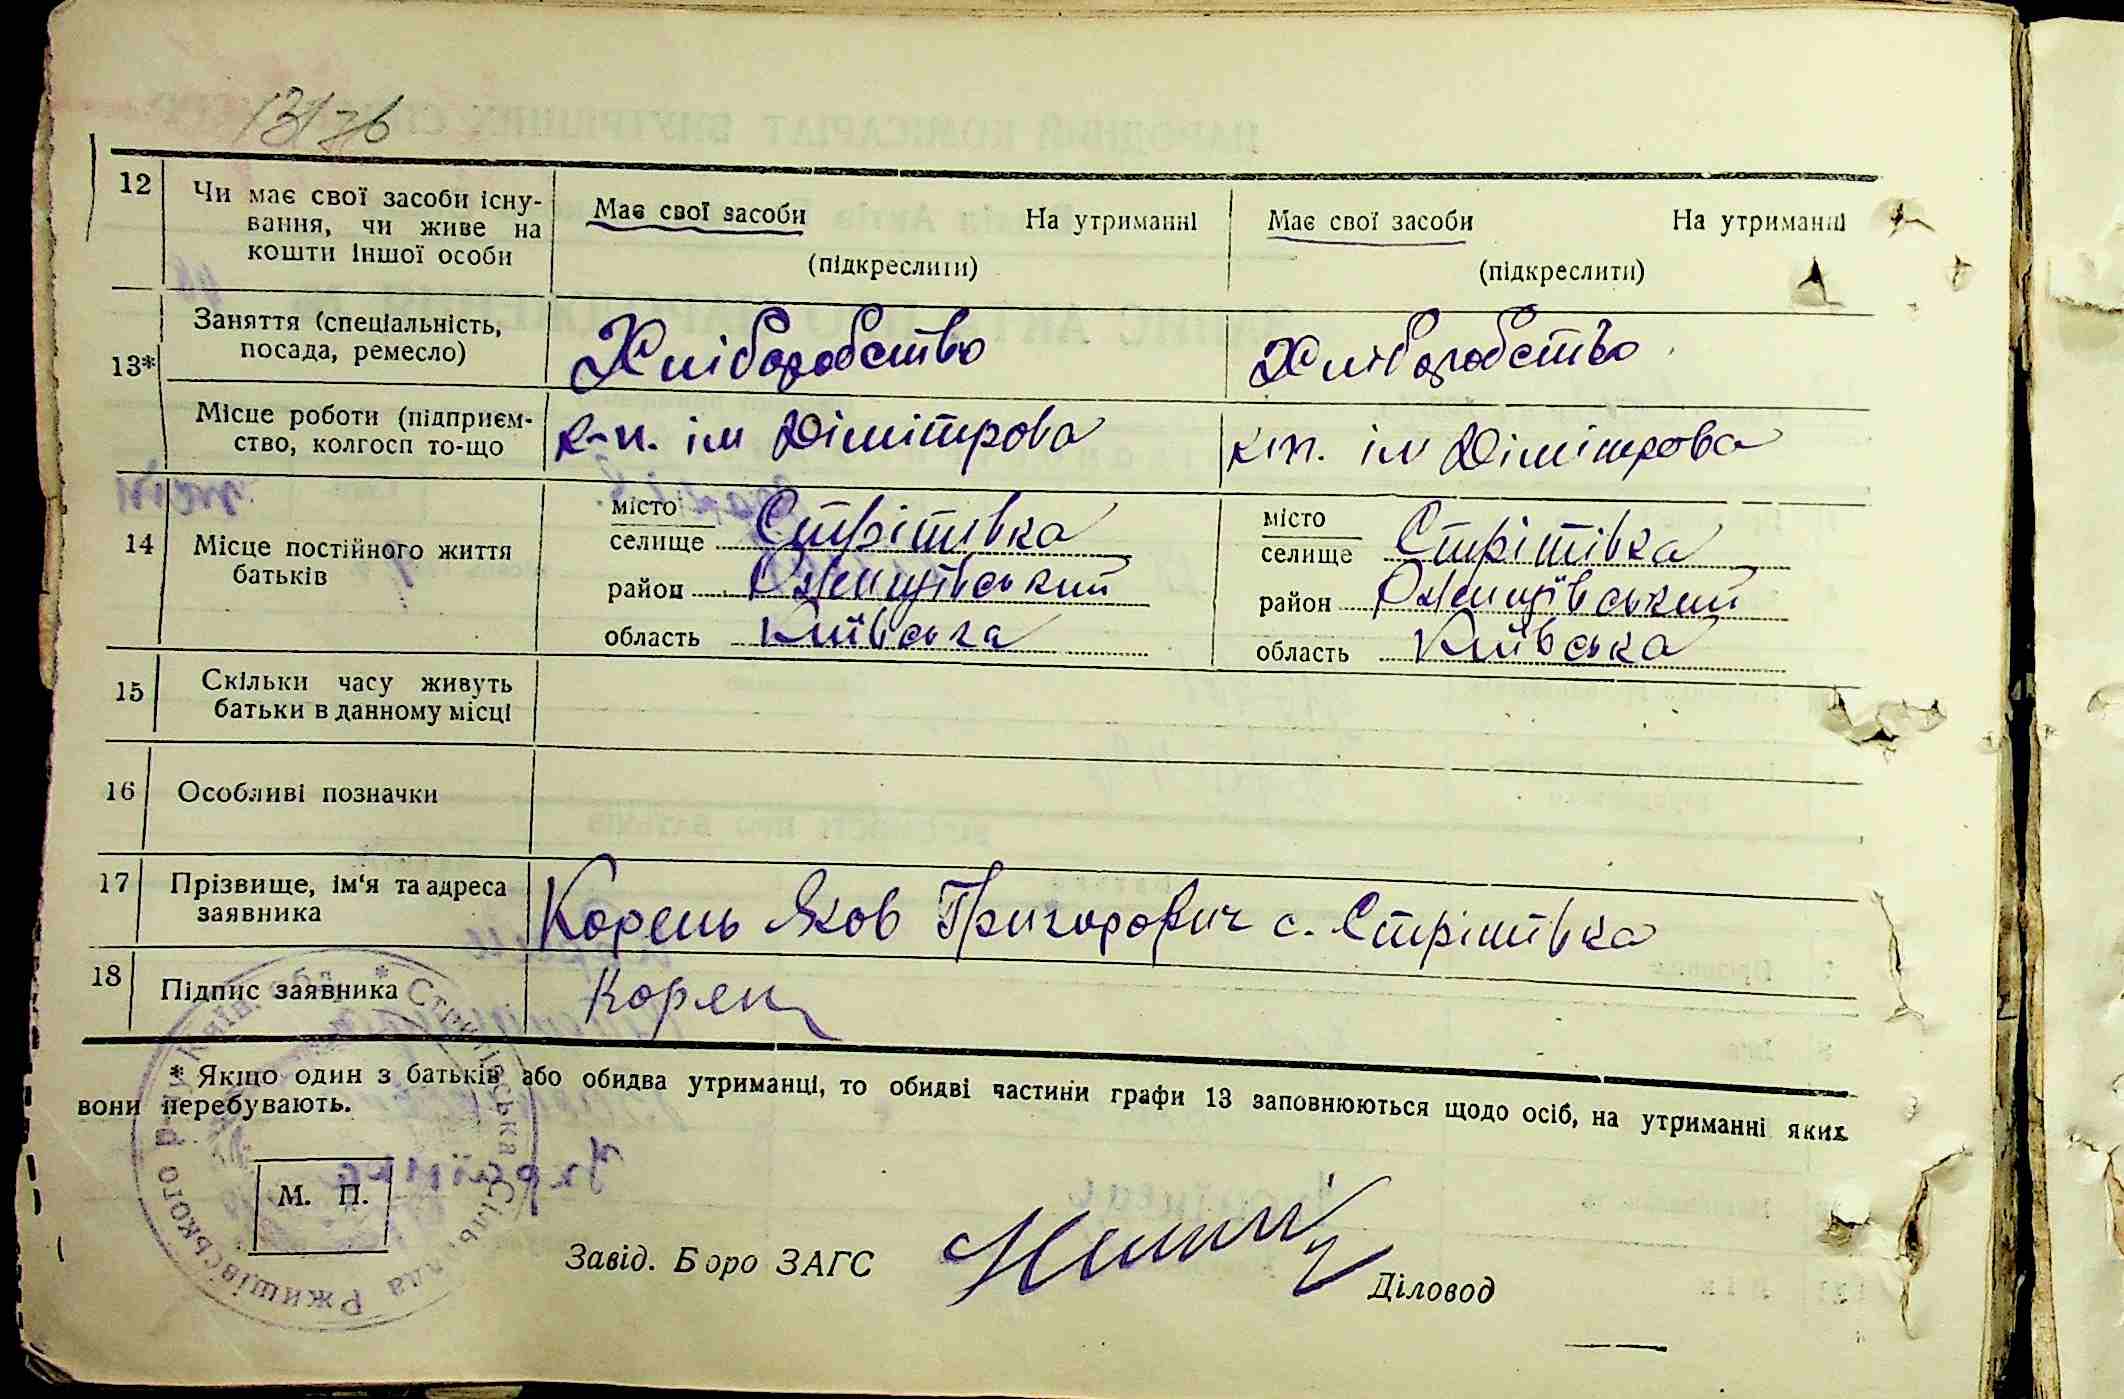 13/зв
12 Чи має свої засоби існу-
вання, чи живе на
кошти іншої особи
Має свої засоби На утриманні
(підкреслити)
Має свої засоби На утриманні
(підкреслити)
13* Заняття (спеціальність,
посада, ремесло)
Хліборобство
Хліборобство
Місце роботи (підприєм-
ство, колгосп то-що
к-п. ім Дімітрова
к-п. ім Дімітрова
14 Місце постійного життя
батьків
місто
селище Стрітівка
район Ржищівський
область Київська
місто
селище Стрітівка
район Ржищівський
область Київська
15 Скільки часу живуть
батьки в данному місці
16 Особливі позначки
17 Прізвище, ім'я та адреса
заявника
Корень Яков Григорович с. Стрітівка
18 Підпис заявника
Корен
* Якщо один з батьків або обидва утриманці, то обидві частини графи 13 заповнюються щодо осіб, на утриманні яких
вони перебувають.
М. П.
Завід. Бюро ЗАГС
Діловод